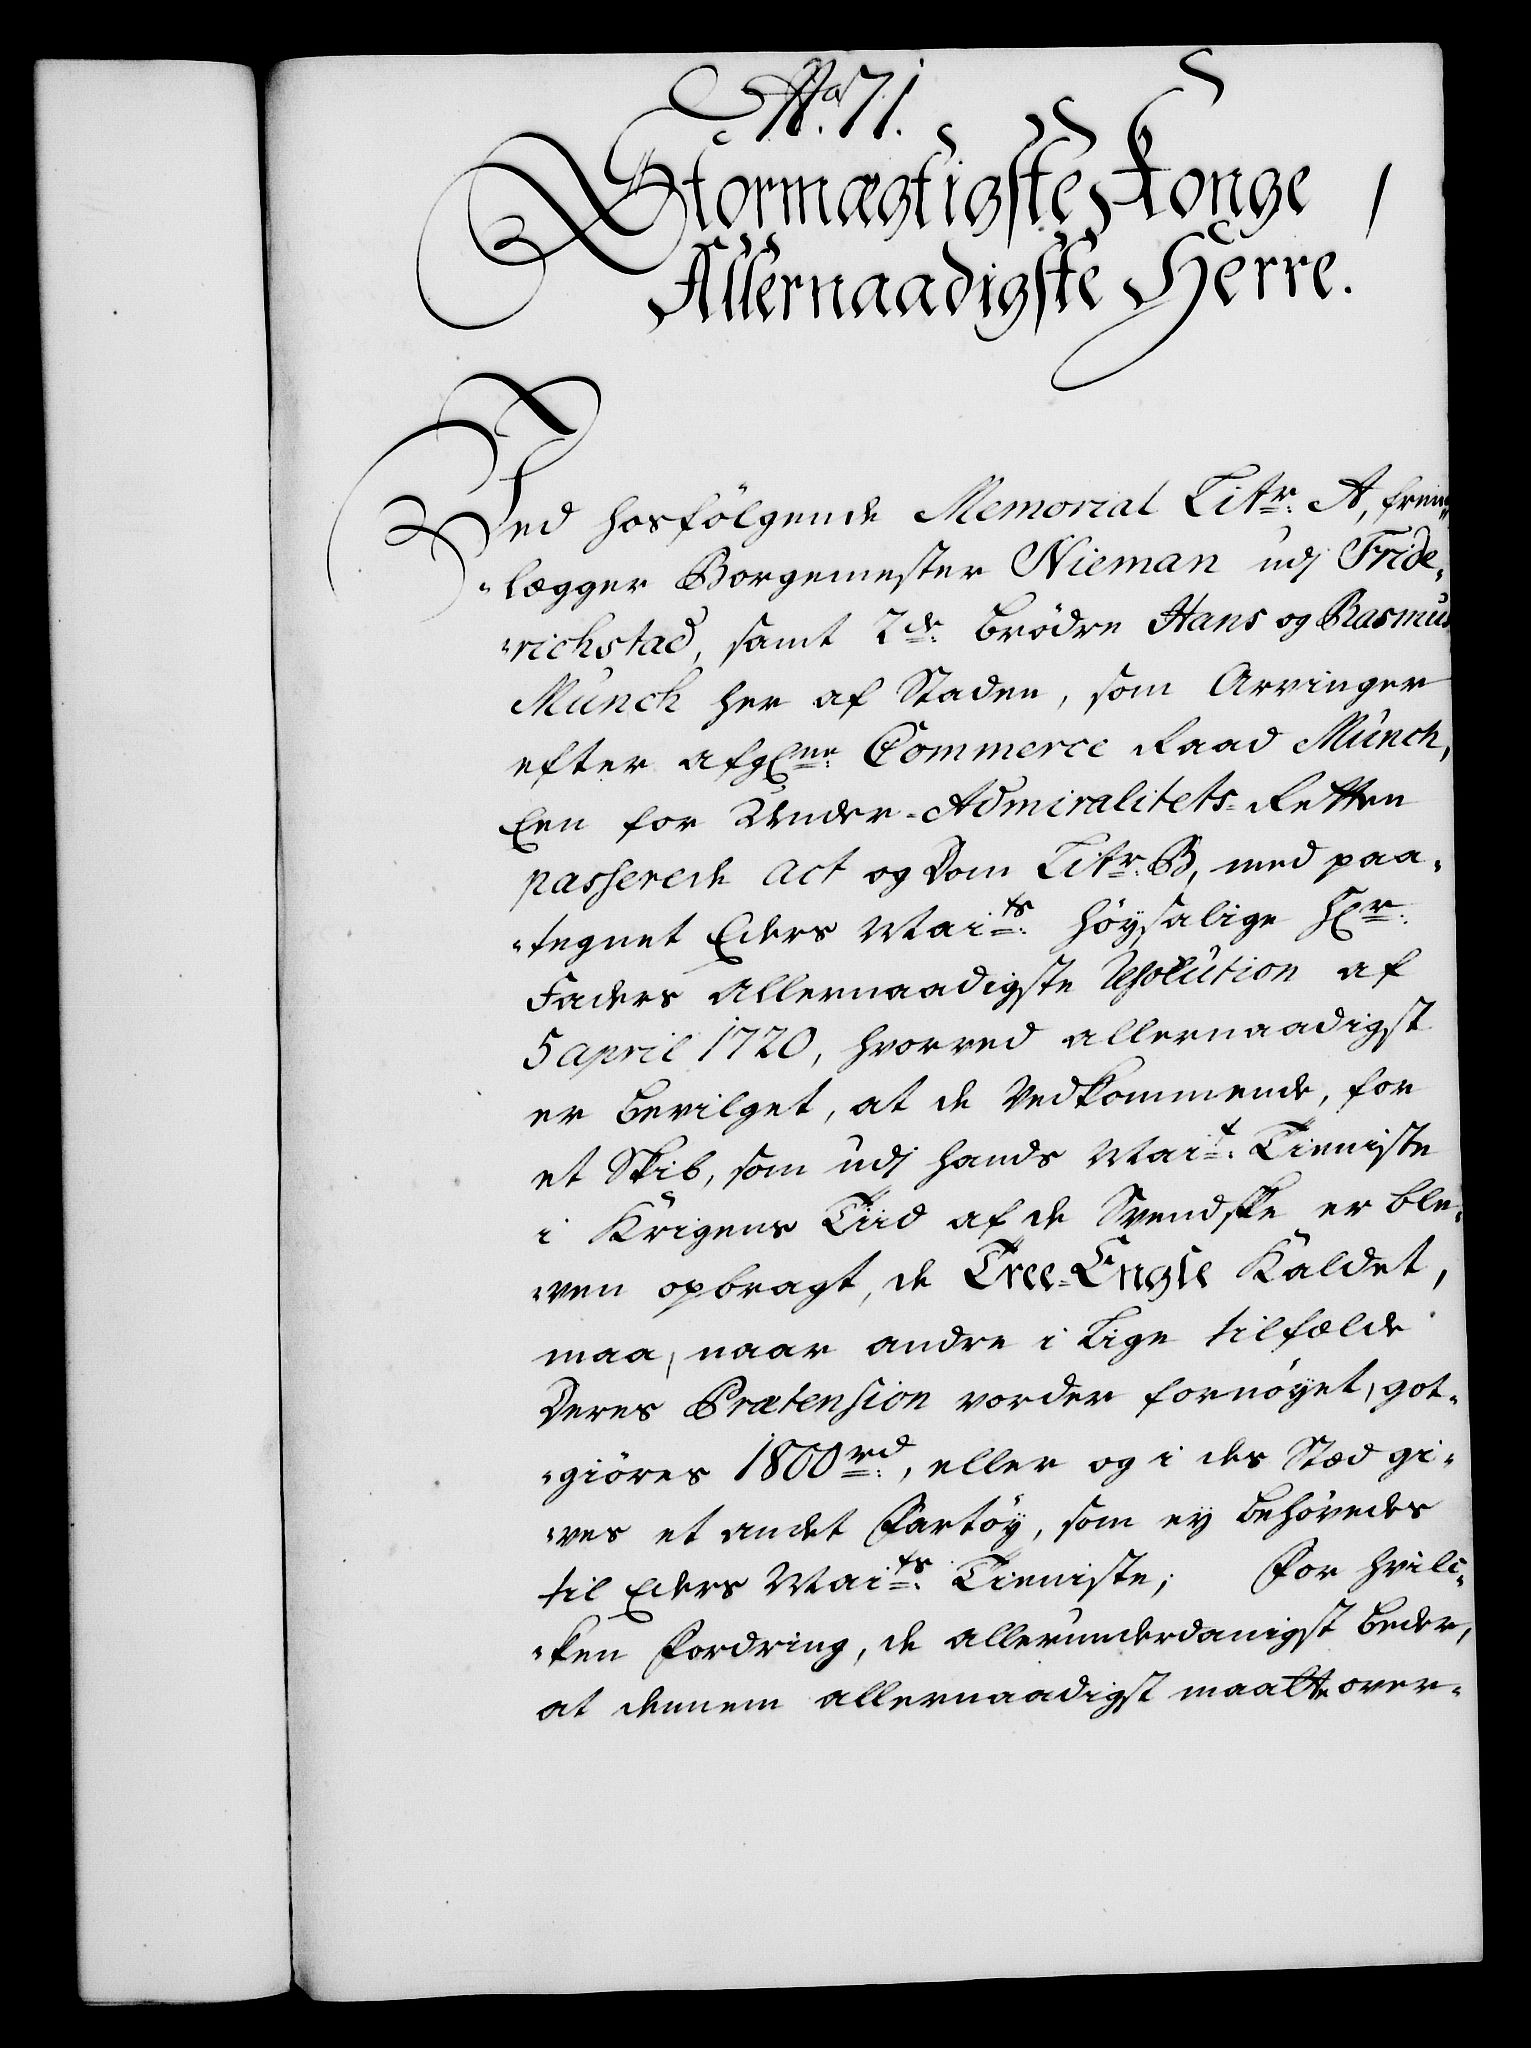 No. 71.
Stormægtigste Konge /
Allernaadigste Herre.
Ved hosfölgende Memorial Litr: A, frem-
-lægger Borgemester Nieman udj Fride-
-richstad, samt 2de: Brödre Hans og Rasmus
Münch her af Staden, som Arvinger
efter afgl:ne: Commerce Raad Münch,
Een for Under-Admiralitets-Retten
passerede act og Dom Litr: B, med paa-
-tegnet Eders Maits: höysalige Hr:
Faders Allernaadigste Resolution af
5 april 1720, hvorved allernaadigst
er bevilget, at de Vedkommende, for
et Skib, som udj hands Mait: Tieniste
i Krigens Tiid af de Svendske er ble-
-ven opbragt, de Tree-Engle Kaldet,
maa, naar andre i Lige tilfælde
Deres Prætension vorder fornöyet, got-
-giöres 1800 rd:, eller og i des Stæd gi-
-ves et andet Fartöy, som ey behövedes
til Eders Maits: Tieniste; For hvilc-
-ken Fordring, de allerunderdanigst beder,
at dennem allernaadigst maatte over-